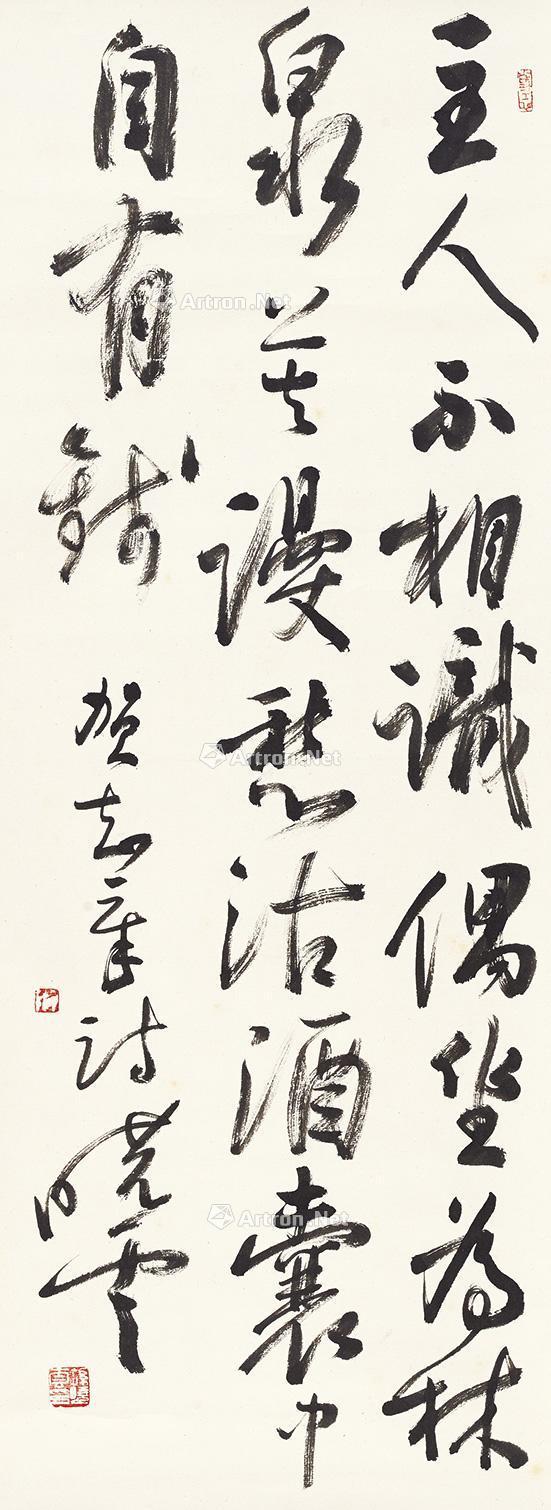 主人不相識偶坐為林
泉莫謾愁沽酒囊中
自有錢
賀知章詩 曉雲
Artron.Net
Artron.Net
Artron.Net